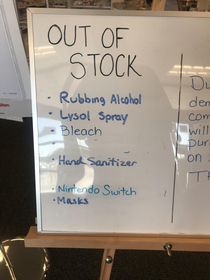 OUT OF
STOCK
- Rubbing Alcohol
- Lysol Spray
- Bleach
-
- Hand Sanitizer
- Nintendo Switch
- Masks
Du
dem
com
will
pur
on
Th